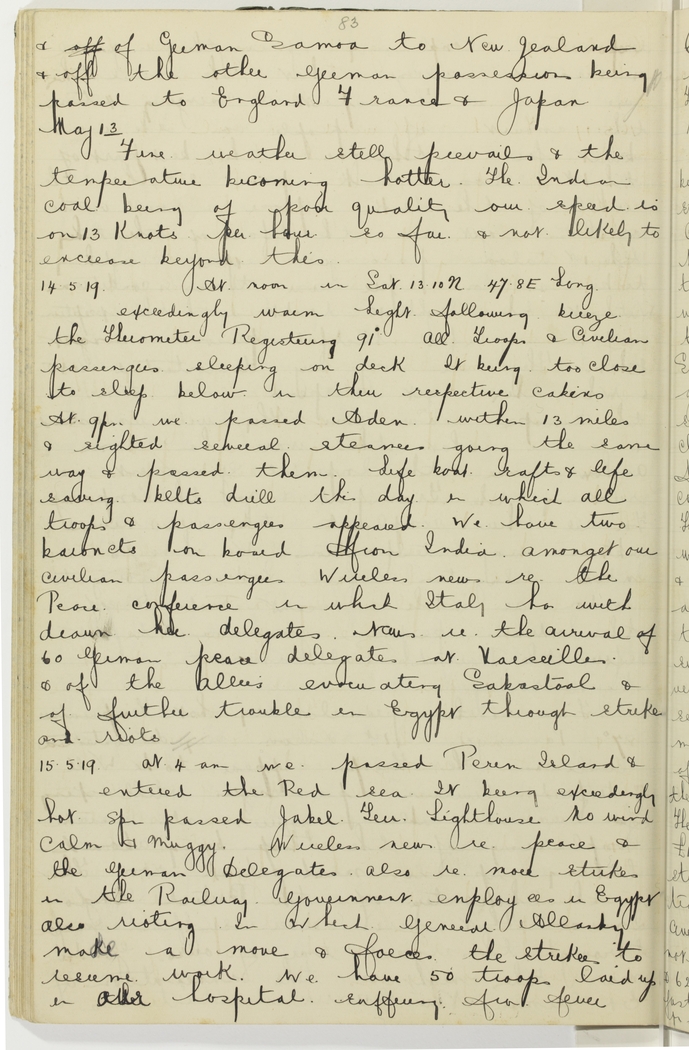 83
& off of German Samoa to New Zealand
& off the other German possession being
passed to England France & Japan
May 13
Fine weather still prevails & the
temperature becoming hotter. The Indian
coal being of poor quality our speed is
on 13 Knots per hour so far & not likely to
encrease beyond this.
14.5.19. At noon in Lat. 13.10 N 47.8 E Long.
exceedingly warm light following breeze
the Thermometer Registering 91° All Troops & Civilian
passengers sleeping on deck It being too close
to sleep below in their respective cabins
At 9 pm we passed Aden within 13 miles
& sighted several steamers going the same
way & passed them. Life boat rafts & life
saving belts drill this day in which all
troops & passengers appeared. We have two
baroncts on board from India amongst our
civilian passengers Wireless news re the
Peace conference in which Italy has with
drawn her delegates. News re the arrival of
60 German peace delegates at Varseilles.
& of the Allies evacuating &
of further trouble in Egypt through strike
and riots
15.5.19. at 4 am we passed Perim Island &
entered the Red sea It being exceedingly
hot 5pm passed Jabel Teir Lighthouse No wind
Calm & Muggy. Wireless news re peace &
the German Delegates also re more strikes
in the Railway Government employees in Egypt
also rioting In which General
make a move & forces the strikes to
resume work. We have 50 troops laid up
in hospital suffering from fever